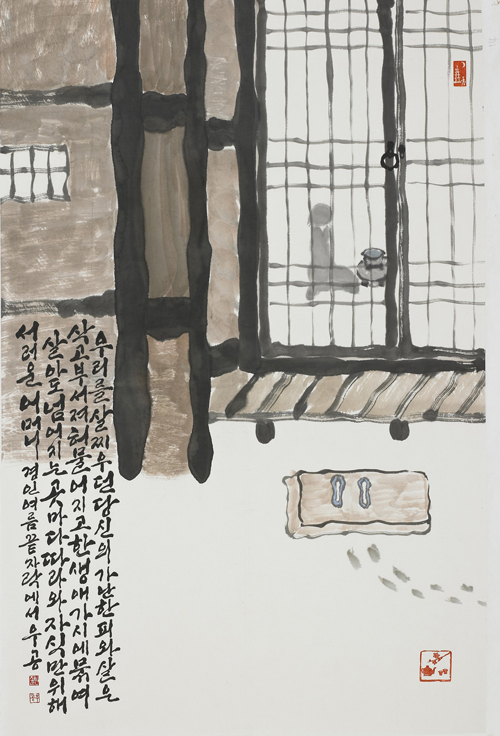 우리를 살찌우던 당신의 가난한 피와 살은
삭고 부서져 허물어지고 한 생애 가시에 묶여
살아도 넘어지는 곳마다 따라와 자식만 위해
서러운 어머니 경인여름 끝자락에서 우공